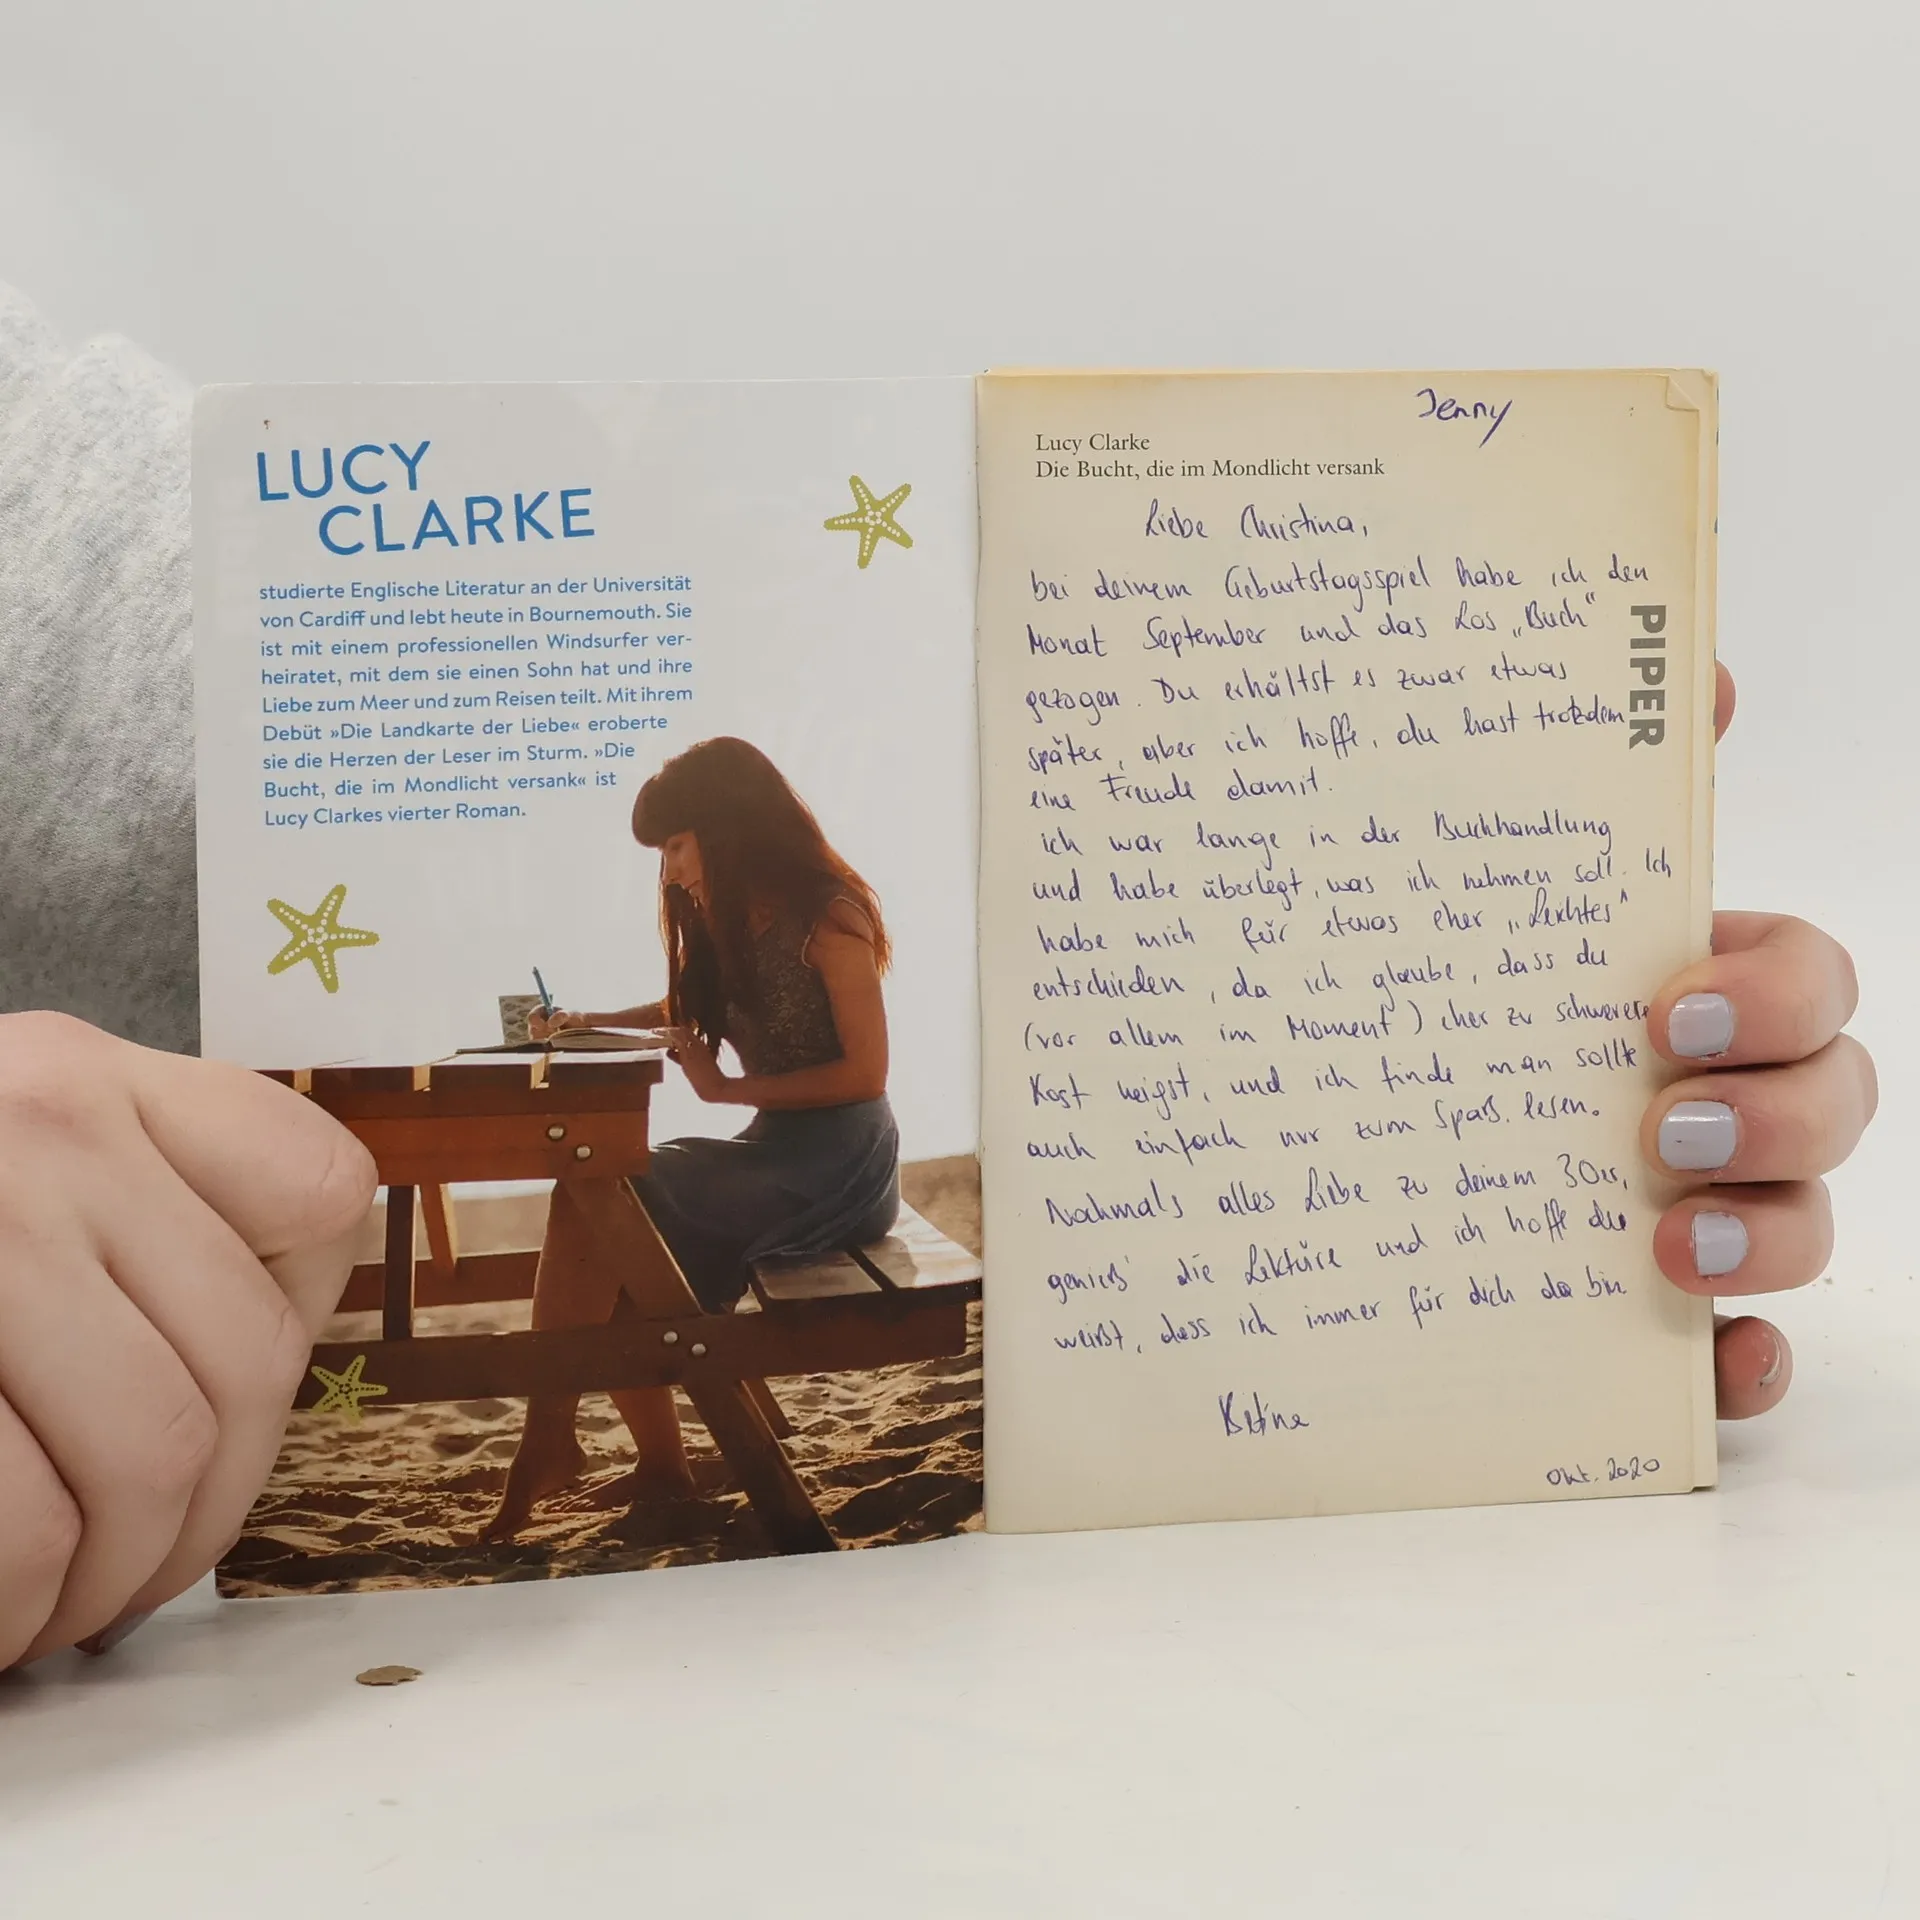 LUCY
CLARKE
studierte Englische Literatur an der Universität
von Cardiff und lebt heute in Bournemouth. Sie
ist mit einem professionellen Windsurfer ver-
heiratet, mit dem sie einen Sohn hat und ihre
Liebe zum Meer und zum Reisen teilt. Mit ihrem
Debüt »Die Landkarte der Liebe« eroberte
sie die Herzen der Leser im Sturm. »Die
Bucht, die im Mondlicht versank« ist
Lucy Clarkes vierter Roman.
Jenny
Lucy Clarke
Die Bucht, die im Mondlicht versank
Liebe Christina,
bei deinem Geburtstagsspiel habe ich den
Monat September und das Los „Buch“
gezogen. Du erhältst es zwar etwas
später, aber ich hoffe, du hast trotzdem
eine Freude damit.
ich war lange in der Buchhandlung
und habe überlegt, was ich nehmen soll. Ich
habe mich für etwas eher „Leichtes“
entschieden, da ich glaube, dass du
(vor allem im Moment) eher zu schwerere
Kost neigst, und ich finde man sollte
auch einfach nur zum Spaß lesen.
Nochmals alles Liebe zu deinem 30er,
genieß' die Lektüre und ich hoffe du
weißt, dass ich immer für dich da bin.
Okt. 2020
PIPER